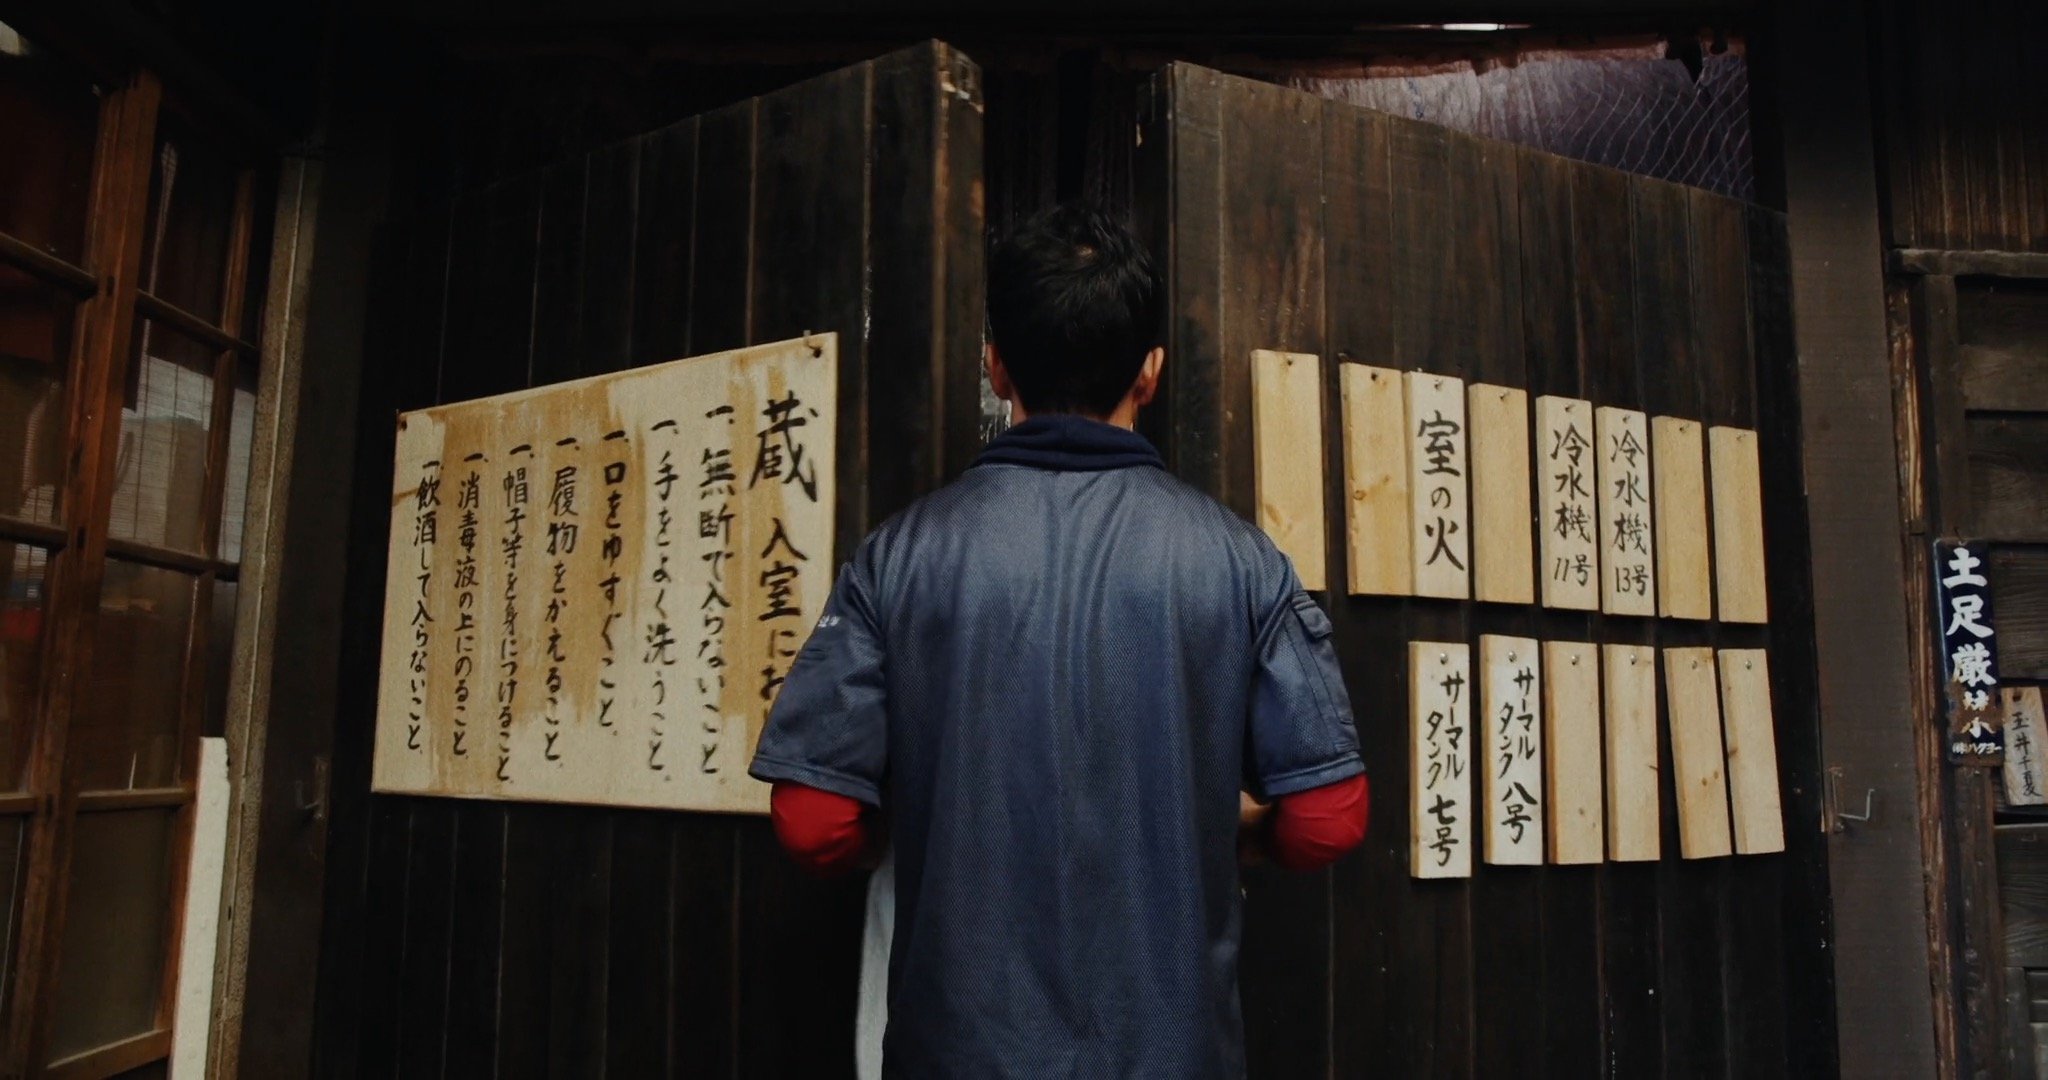 蔵入室にお
一、無断で入らないこと。
一、手をよく洗うこと。
一、口をゆすぐこと。
一、履物をかえること。
一、帽子等を身につけること。
一、消毒液の上にのること。
一、飲酒して入らないこと。
室の火
冷水機11号
冷水機13号
サーマルタンク七号
サーマルタンク八号
土足厳禁
玉井千夏